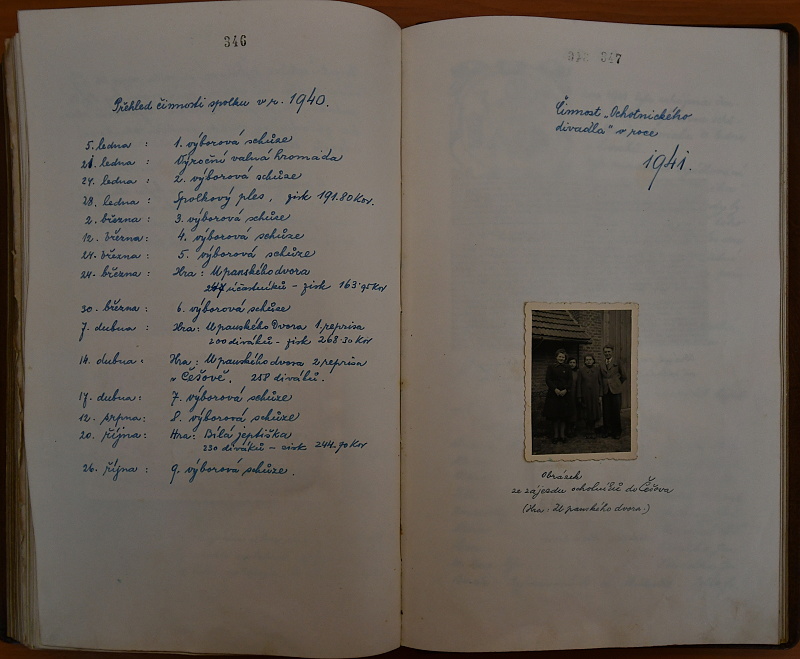 346
Přehled činnosti spolku v r. 1940.
5. ledna: 1. výborová schůze
21. ledna: Výroční valná hromada
24. ledna: 2. výborová schůze
28. ledna: Spolkový ples, zisk 191.80 Kor.
2. března: 3. výborová schůze
12. března: 4. výborová schůze
24. března: 5. výborová schůze
24. března: Hra: U panského dvora
účastníků – zisk 163.95 Kor
30. března: 6. výborová schůze
7. dubna: Hra: U panského Dvora 1. reprisa
200 diváků – zisk 268.30 Kor
14. dubna: Hra: U panského dvora 2. reprisa
v Češově. 258 diváků.
17. dubna: 7. výborová schůze
12. srpna: 8. výborová schůze
20. října: Hra: Bílá jeptiška
230 diváků – zisk 244.90 Kor
26. října: 9. výborová schůze.
347
Činnost „Ochotnického
divadla" v roce
1941.
Obrázek
ze zájezdu ochotníků do Češova
(Hra: U panského dvora:)